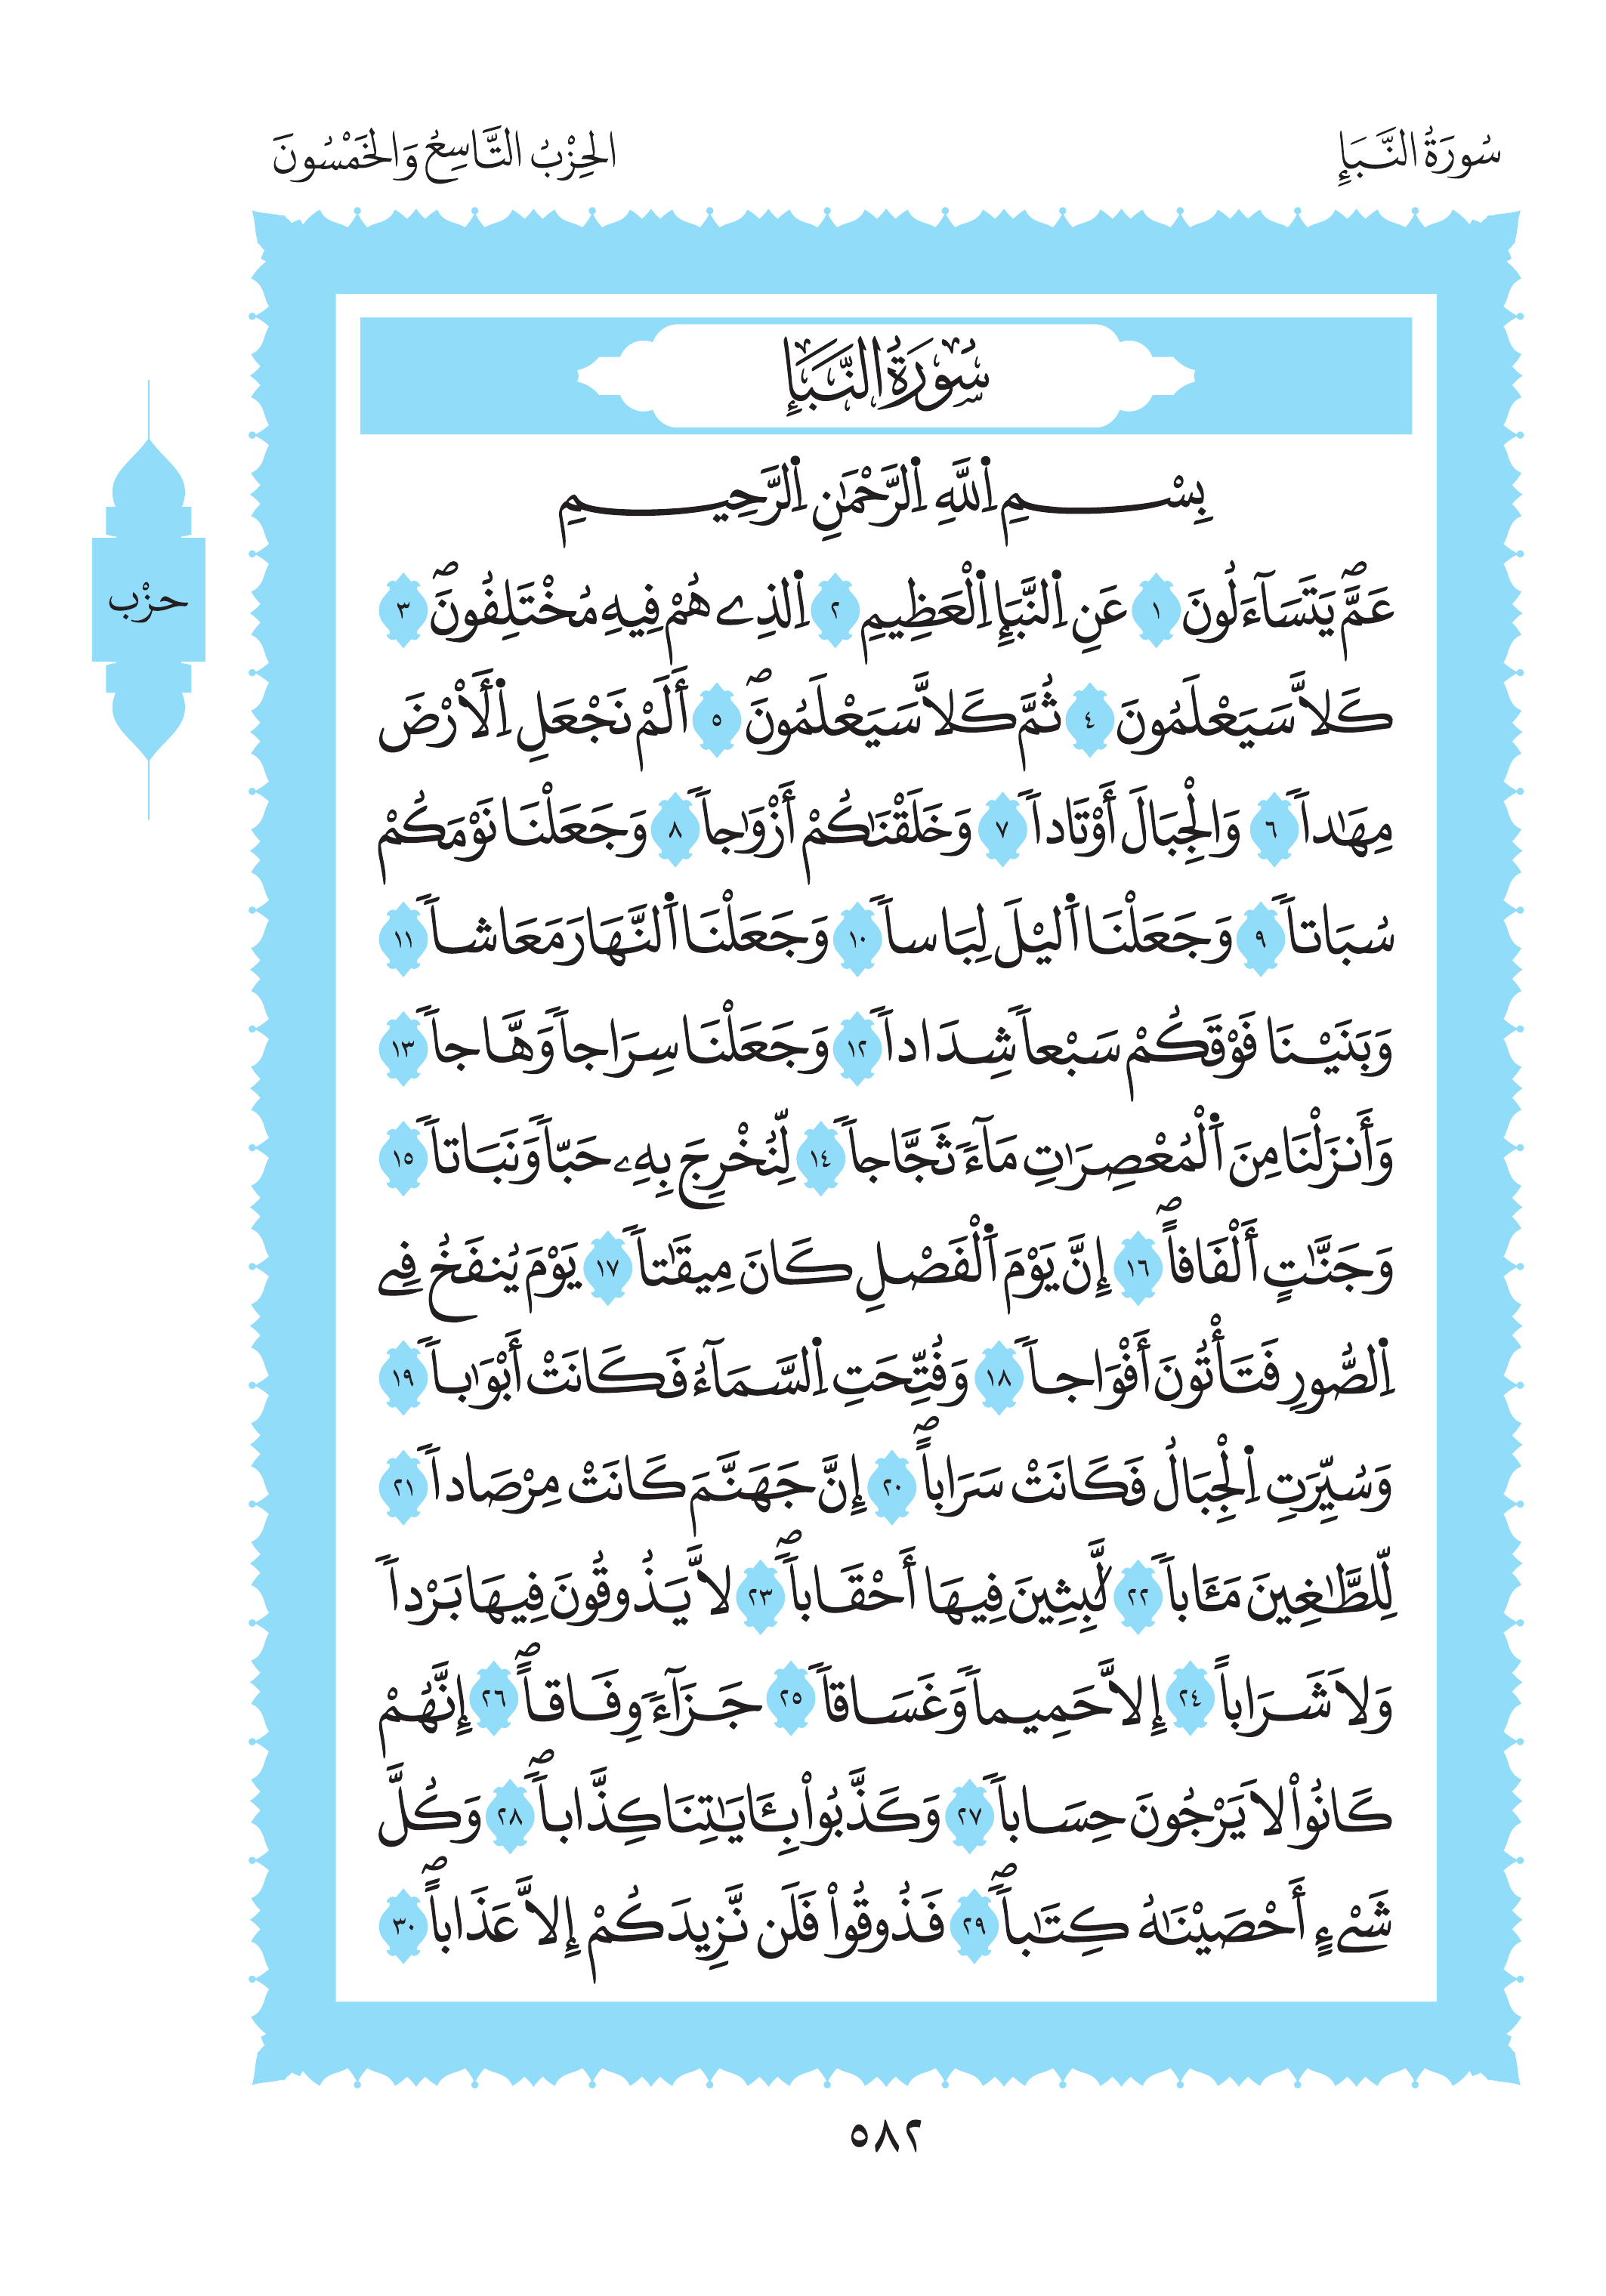 سُورَةُ النَّبَإِ
الحِزْبُ التَّاسِعُ وَالخَمْسُونَ
سُورَةُ النَّبَإِ
حزْب
بِسْمِ اِ۬للَّهِ اِ۬لرَّحْمَٰنِ اِ۬لرَّحِيمِ
عَمَّۖ يَتَسَآءَلُونَ ١ عَنِ اِ۬لنَّبَإِ اِ۬لْعَظِيمِ ٢ اِ۬لذِے هُمْ فِيهِ مُخْتَلِفُونَۖ ٣
كَلَّا سَيَعْلَمُونَ ٤ ثُمَّ كَلَّا سَيَعْلَمُونَۖ ٥ أَلَمْ نَجْعَلِ اِ۬لْأَرْضَ
مِهَٰداٗ ٦ وَالْجِبَالَ أَوْتَاداٗ ٧ وَخَلَقْنَٰكُمْ أَزْوَٰجاٗ ٨ وَجَعَلْنَا نَوْمَكُمْ
سُبَاتاٗ ٩ وَجَعَلْنَا اَ۬ليْلَ لِبَاساٗ ١٠ وَجَعَلْنَا اَ۬لنَّهَارَ مَعَاشاٗ ١١
وَبَنَيْنَا فَوْقَكُمْ سَبْعاٗ شِدَاداٗ ١٢ وَجَعَلْنَا سِرَاجاٗ وَهَّاجاٗ ١٣
وَأَنزَلْنَا مِنَ اَ۬لْمُعْصِرَٰتِ مَآءٗ ثَجَّاجاٗ ١٤ لِّنُخْرِجَ بِهِۦ حَبّاٗ وَنَبَاتاٗ ١٥
وَجَنَّٰتٍ أَلْفَافاًۖ ١٦ إِنَّ يَوْمَ اَ۬لْفَصْلِ كَانَ مِيقَٰتاٗ ١٧ يَوْمَ يُنفَخُ فِے
اِ۬لصُّورِ فَتَأْتُونَ أَفْوَاجاٗ ١٨ وَفُتِّحَتِ اِ۬لسَّمَآءُ فَكَانَتْ أَبْوَٰباٗ ١٩
وَسُيِّرَتِ اِ۬لْجِبَالُ فَكَانَتْ سَرَاباًۖ ٢٠ إِنَّ جَهَنَّمَ كَانَتْ مِرْصَاداٗ ٢١
لِّلطَّٰغِينَ مَـَٔاباٗ ٢٢ لَّٰبِثِينَ فِيهَا أَحْقَاباٗۖ ٢٣ لَّا يَذُوقُونَ فِيهَا بَرْداٗ
وَلَا شَرَاباً ٢٤ إِلَّا حَمِيماٗ وَغَسَاقاٗ ٢٥ جَزَآءٗ وِفَاقاًۖ ٢٦ إِنَّهُمْ
كَانُواْ لَا يَرْجُونَ حِسَاباٗ ٢٧ وَكَذَّبُواْ بِـَٔايَٰتِنَا كِذَّاباٗۖ ٢٨ وَكُلَّ
شَےْءٍ أَحْصَيْنَٰهُ كِتَٰباٗۖ ٢٩ فَذُوقُواْ فَلَن نَّزِيدَكُمْ إِلَّا عَذَاباًۖ ٣٠
٥٨٢